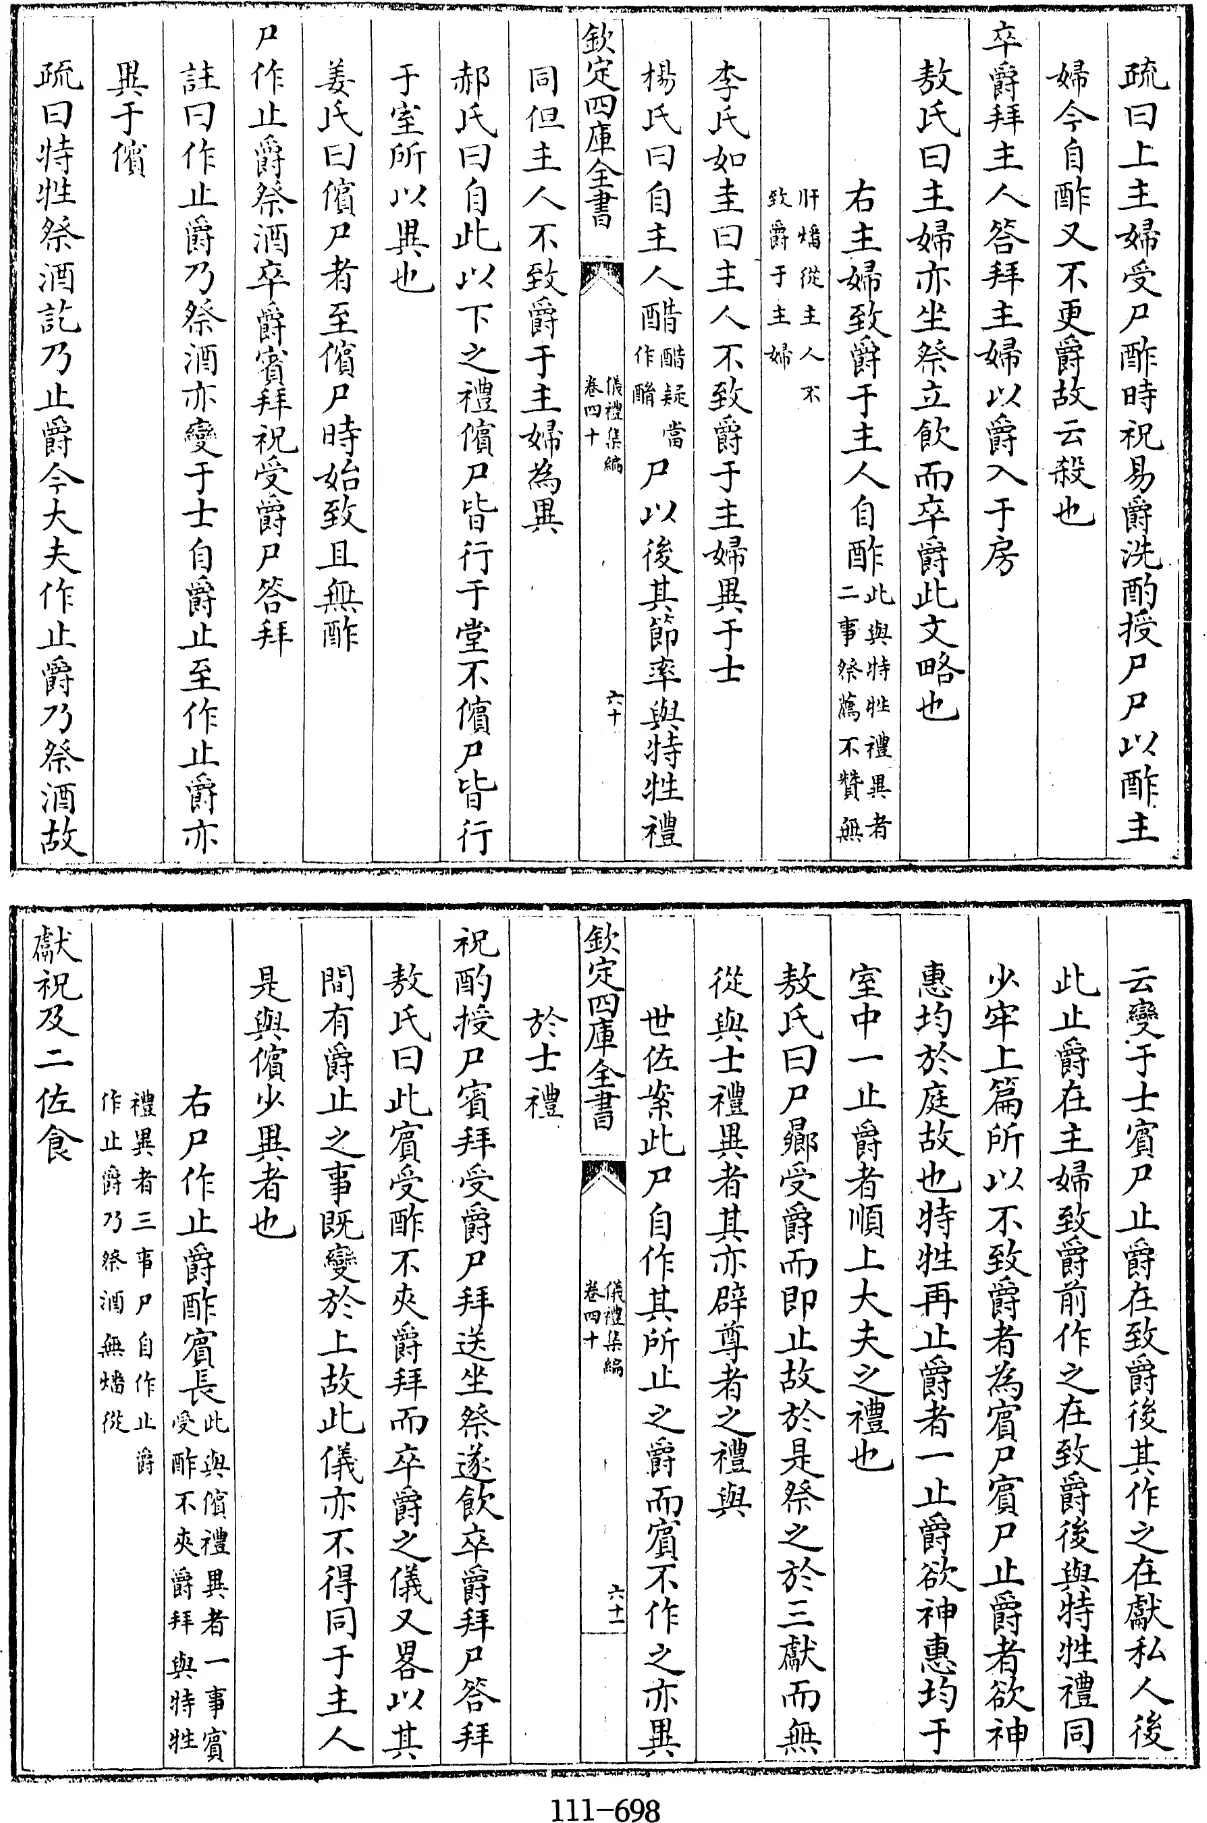 疏曰上主婦受尸酢時祝易爵洗酌授尸尸以酢主
婦今自酢又不更爵故云殺也
卒爵拜主人答拜主婦以爵入于房
敖氏曰主婦亦坐祭立飲而卒爵此文略也
右主婦致爵于主人自酢此與特牲禮異者
二事祭薦不贊無
肝燔從主人不
致爵于主婦
李氏如圭曰主人不致爵于主婦異于士
楊氏曰自主人酷酷疑當
作酳
尸以後其節率與特牲禮
欽定四庫全書
儀禮集編
卷四十
六十
同但主人不致爵于主婦為異
郝氏曰自此以下之禮儐尸皆行于堂不儐尸皆行
于室所以異也
姜氏曰儐尸者至儐尸時始致且無酢
尸作止爵祭酒卒爵賓拜祝受爵尸答拜
註曰作止爵乃祭酒亦變于士自爵止至作止爵亦
異于儐
疏曰特牲祭酒訖乃止爵今大夫作止爵乃祭酒故
云變于士賓尸止爵在致爵後其作之在獻私人後
此止爵在主婦致爵前作之在致爵後與特牲禮同
少牢上篇所以不致爵者為賓尸賓尸止爵者欲神
惠均於庭故也特牲再止爵者一止爵欲神惠均于
室中一止爵者順上大夫之禮也
敖氏曰尸曏受爵而即止故於是祭之於三獻而無
從與士禮異者其亦辟尊者之禮與
世佐案此尸自作其所止之爵而賓不作之亦異
欽定四庫全書
儀禮集編
卷四十
六十一
於士禮
祝酌授尸賓拜受爵尸拜送坐祭遂飲卒爵拜尸答拜
敖氏曰此賓受酢不夾爵拜而卒爵之儀又畧以其
間有爵止之事既變於上故此儀亦不得同于主人
是與儐少異者也
右尸作止爵酢賓長此與儐禮異者一事賓
受酢不夾爵拜與特牲
禮異者三事尸自作止爵
作止爵乃祭酒無燔從
獻祝及二佐食
111-698